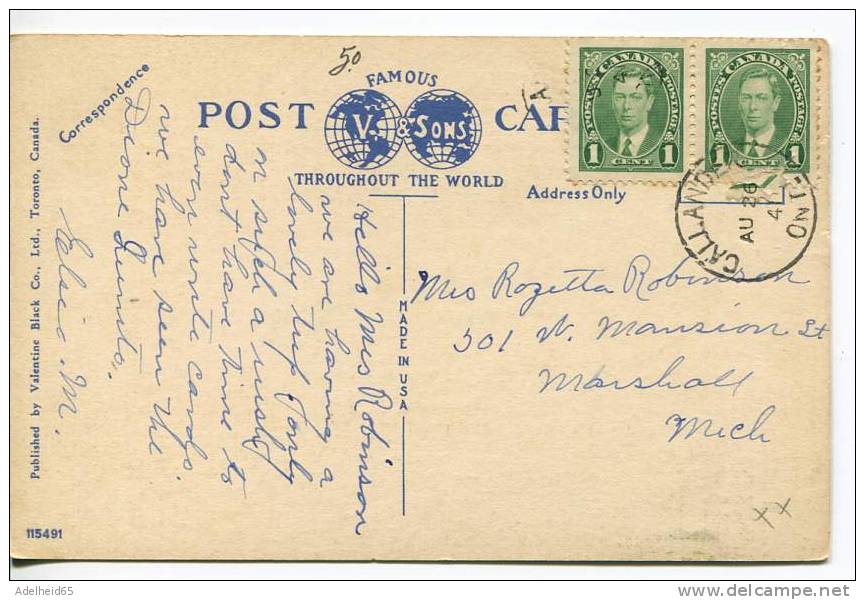 Correspondence
50
FAMOUS
POST CAR
V. & SONS
THROUGHOUT THE WORLD
Address Only
POSTES CANADA POSTAGE
1 CENT 1
POSTES CANADA POSTAGE
1 CENT 1
CALLANDER ONT
AU 26
4
Hello Mrs Robinson
we are having a
lovely trip only
in such a rush
dont have time to
even write cards.
we have seen the
Dione Quints.
Elsie. M.
Mrs Rozetta Robinson
301 N. Mansion St
Marshall
Mich
MADE IN USA
Published by Valentine Black Co., Ltd., Toronto, Canada.
115491
xx
Adelheid65
delcampe.net